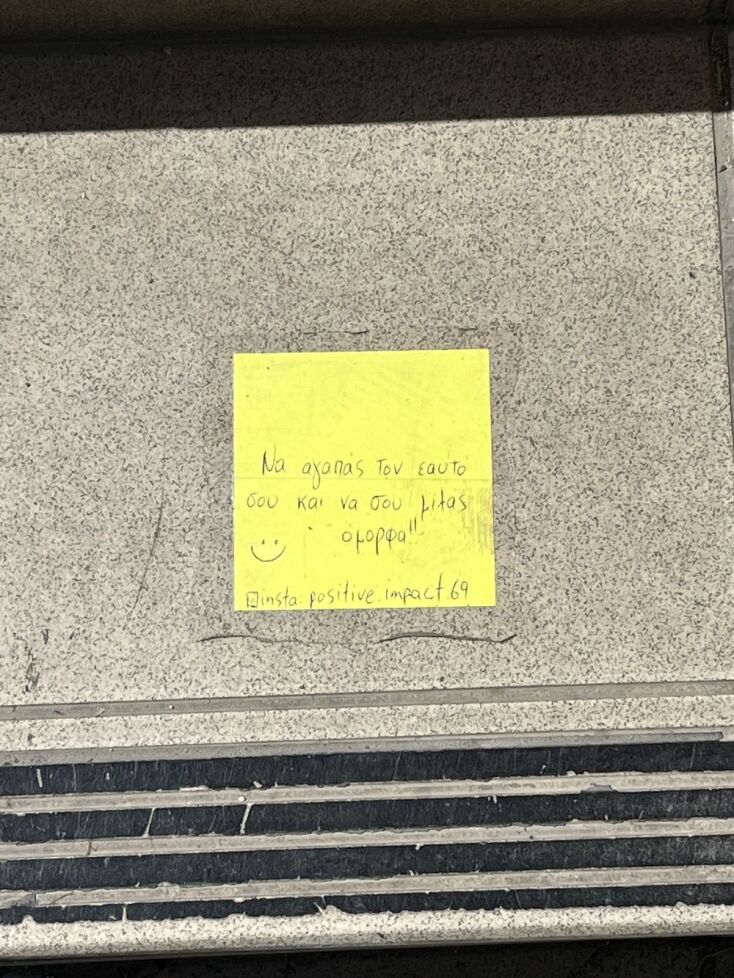 Να αγαπάς τον εαυτο
σου και να σου μιλας
ομορφα"
insta: positive.impact.69